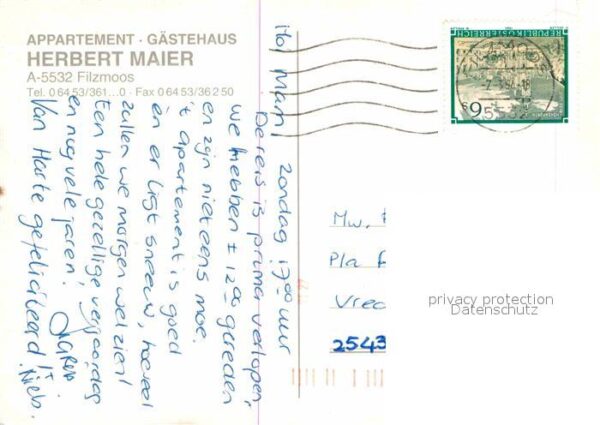 APPARTEMENT · GÄSTEHAUS
HERBERT MAIER
A-5532 Filzmoos
Tel. 0 64 53/361...0 · Fax 0 64 53/362 50
Hoi Mam! Zondag 17.00 uur
De reis is prima verlopen,
we hebben ± 12.00 gereden
en zijn niet eens moe.
't apartement is goed
en er ligt sneeuw, hoeveel
zullen we morgen wel zien!
Een hele gezellige verjaardag
en nog vele jaren!
Van Harte gefeliciteerd!!
Niels.
REPUBLIK ÖSTERREICH
S 9
Mw.
Pla
Vree
2543
privacy protection
Datenschutz